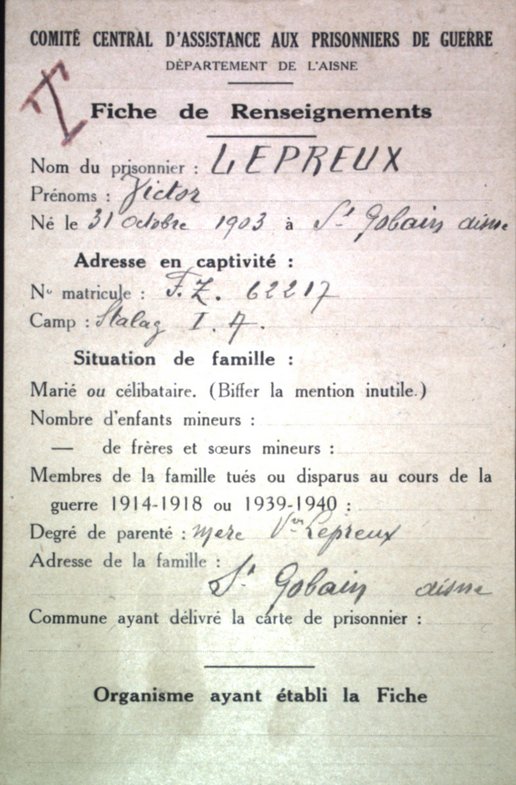 COMITÉ CENTRAL D'ASSISTANCE AUX PRISONNIERS DE GUERRE
DÉPARTEMENT DE L'AISNE
I
Fiche de Renseignements
Nom du prisonnier : LEPREUX
Prénoms : Victor
Né le 31 Octobre 1903 à St Gobain aisne
Adresse en captivité :
No matricule : F.Z. 62217
Camp : Stalag I. A.
Situation de famille :
Marié ou célibataire. (Biffer la mention inutile.)
Nombre d'enfants mineurs :
— de frères et sœurs mineurs :
Membres de la famille tués ou disparus au cours de la
guerre 1914-1918 ou 1939-1940 :
Degré de parenté : mere Vve Lepreux
Adresse de la famille :
St Gobain aisne
Commune ayant délivré la carte de prisonnier :
Organisme ayant établi la Fiche